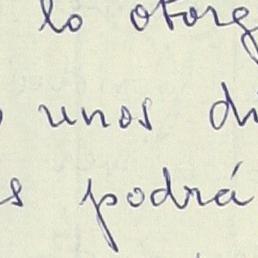 lo otorg
unos di
s podrá